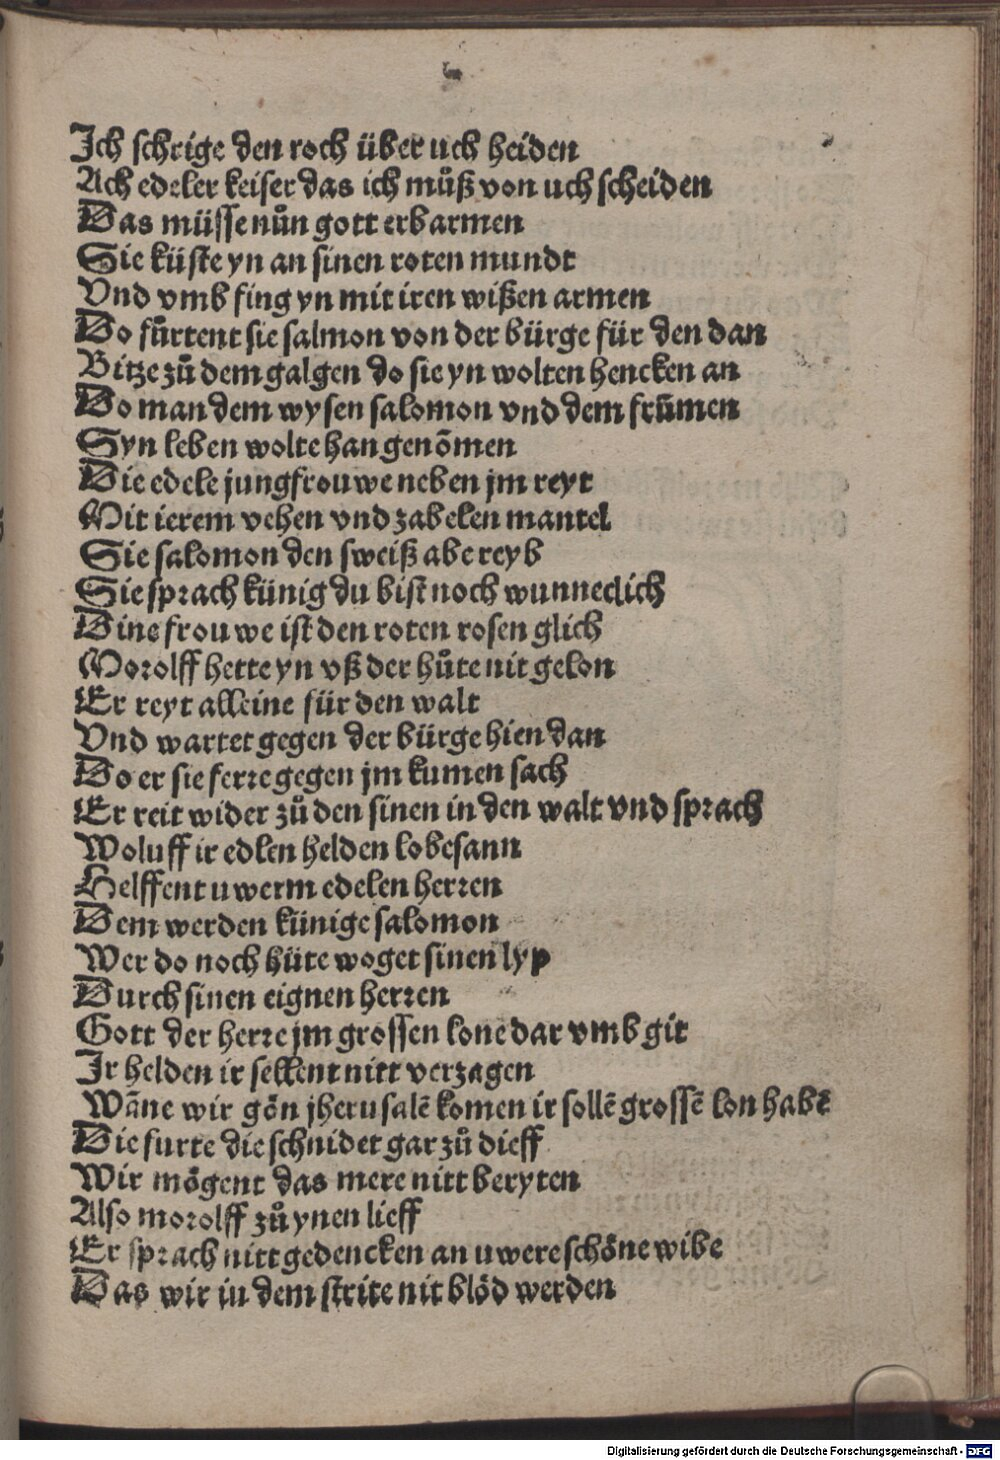 Ich schrige den roch über uch heiden
Ach edeler keiser das ich můß von uch scheiden
Das müsse nůn gott erbarmen
Sie küste yn an sinen roten mundt
Vnd vmb fing yn mit iren wißen armen
Do fůrtent sie salmon von der bürge für den dan
Bitze zů dem galgen do sie yn wolten hencken an
Do man dem wysen salomon vnd dem frům̄en
Syn leben wolte han genōmen
Die edele jungfrouwe neben jm reyt
Mit ierem vehen vnd zabelen mantel
Sie salomon den sweiß abe reyb
Sie sprach künig du bist noch wunneclich
Dine frouwe ist den roten rosen glich
Morolff hette yn vß der hůte nit gelon
Er reyt alleine für den walt
Vnd wartet gegen der bürge hien dan
Do er sie ferre gegen jm kumen sach
Er reit wider zů den sinen in den walt vnd sprach
Woluff ir edlen helden lobesann
Helffent uwerm edelen herren
Dem werden künige salomon
Wer do noch hüte woget sinen lyp
Durch sinen eignen herren
Gott der herre jm grossen lone dar vmb git
Ir helden ir sellent nitt verzagen
Wāne wir gön jherusalē komen ir sollē grossē lon habē
Die furte die schnidet gar zů dieff
Wir mögent das mere nitt beryten
Also morolff zů ynen lieff
Er sprach nitt gedencken an uwere schöne wibe
Das wir in dem strite nit blöd werden
Digitalisierung gefördert durch die Deutsche Forschungsgemeinschaft - DFG